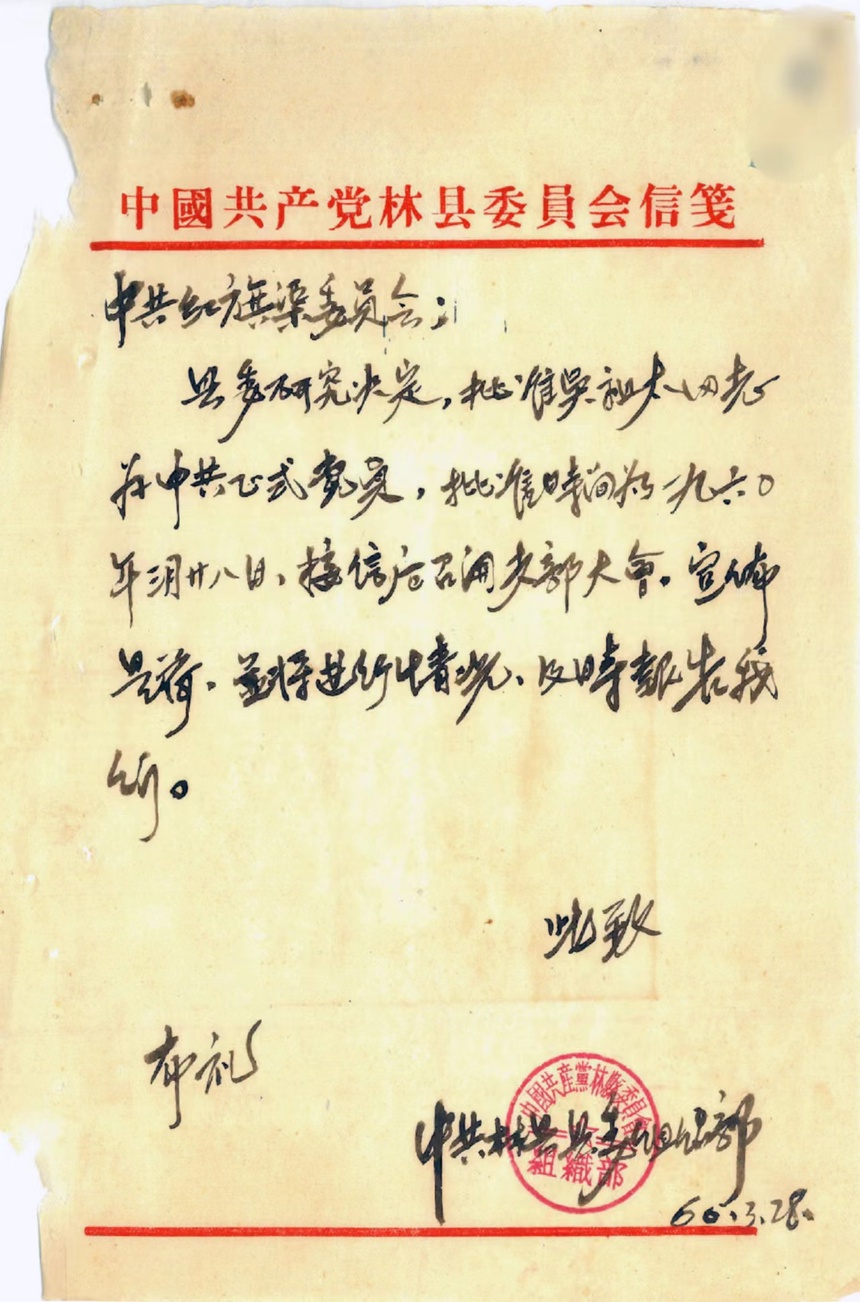 中國共产党林县委員会信笺
中共红旗渠委员会：
县委研究决定，批准吴祖太同志
为中共正式党员，批准時间为一九六〇
年三月廿八日，接信后召開支部大會，宣佈
是荷，並将进行情况，及時報告我
们。
此致
布礼
中國共産黨林縣委員會
組織部
中共林县县委组织部
60.3.28.